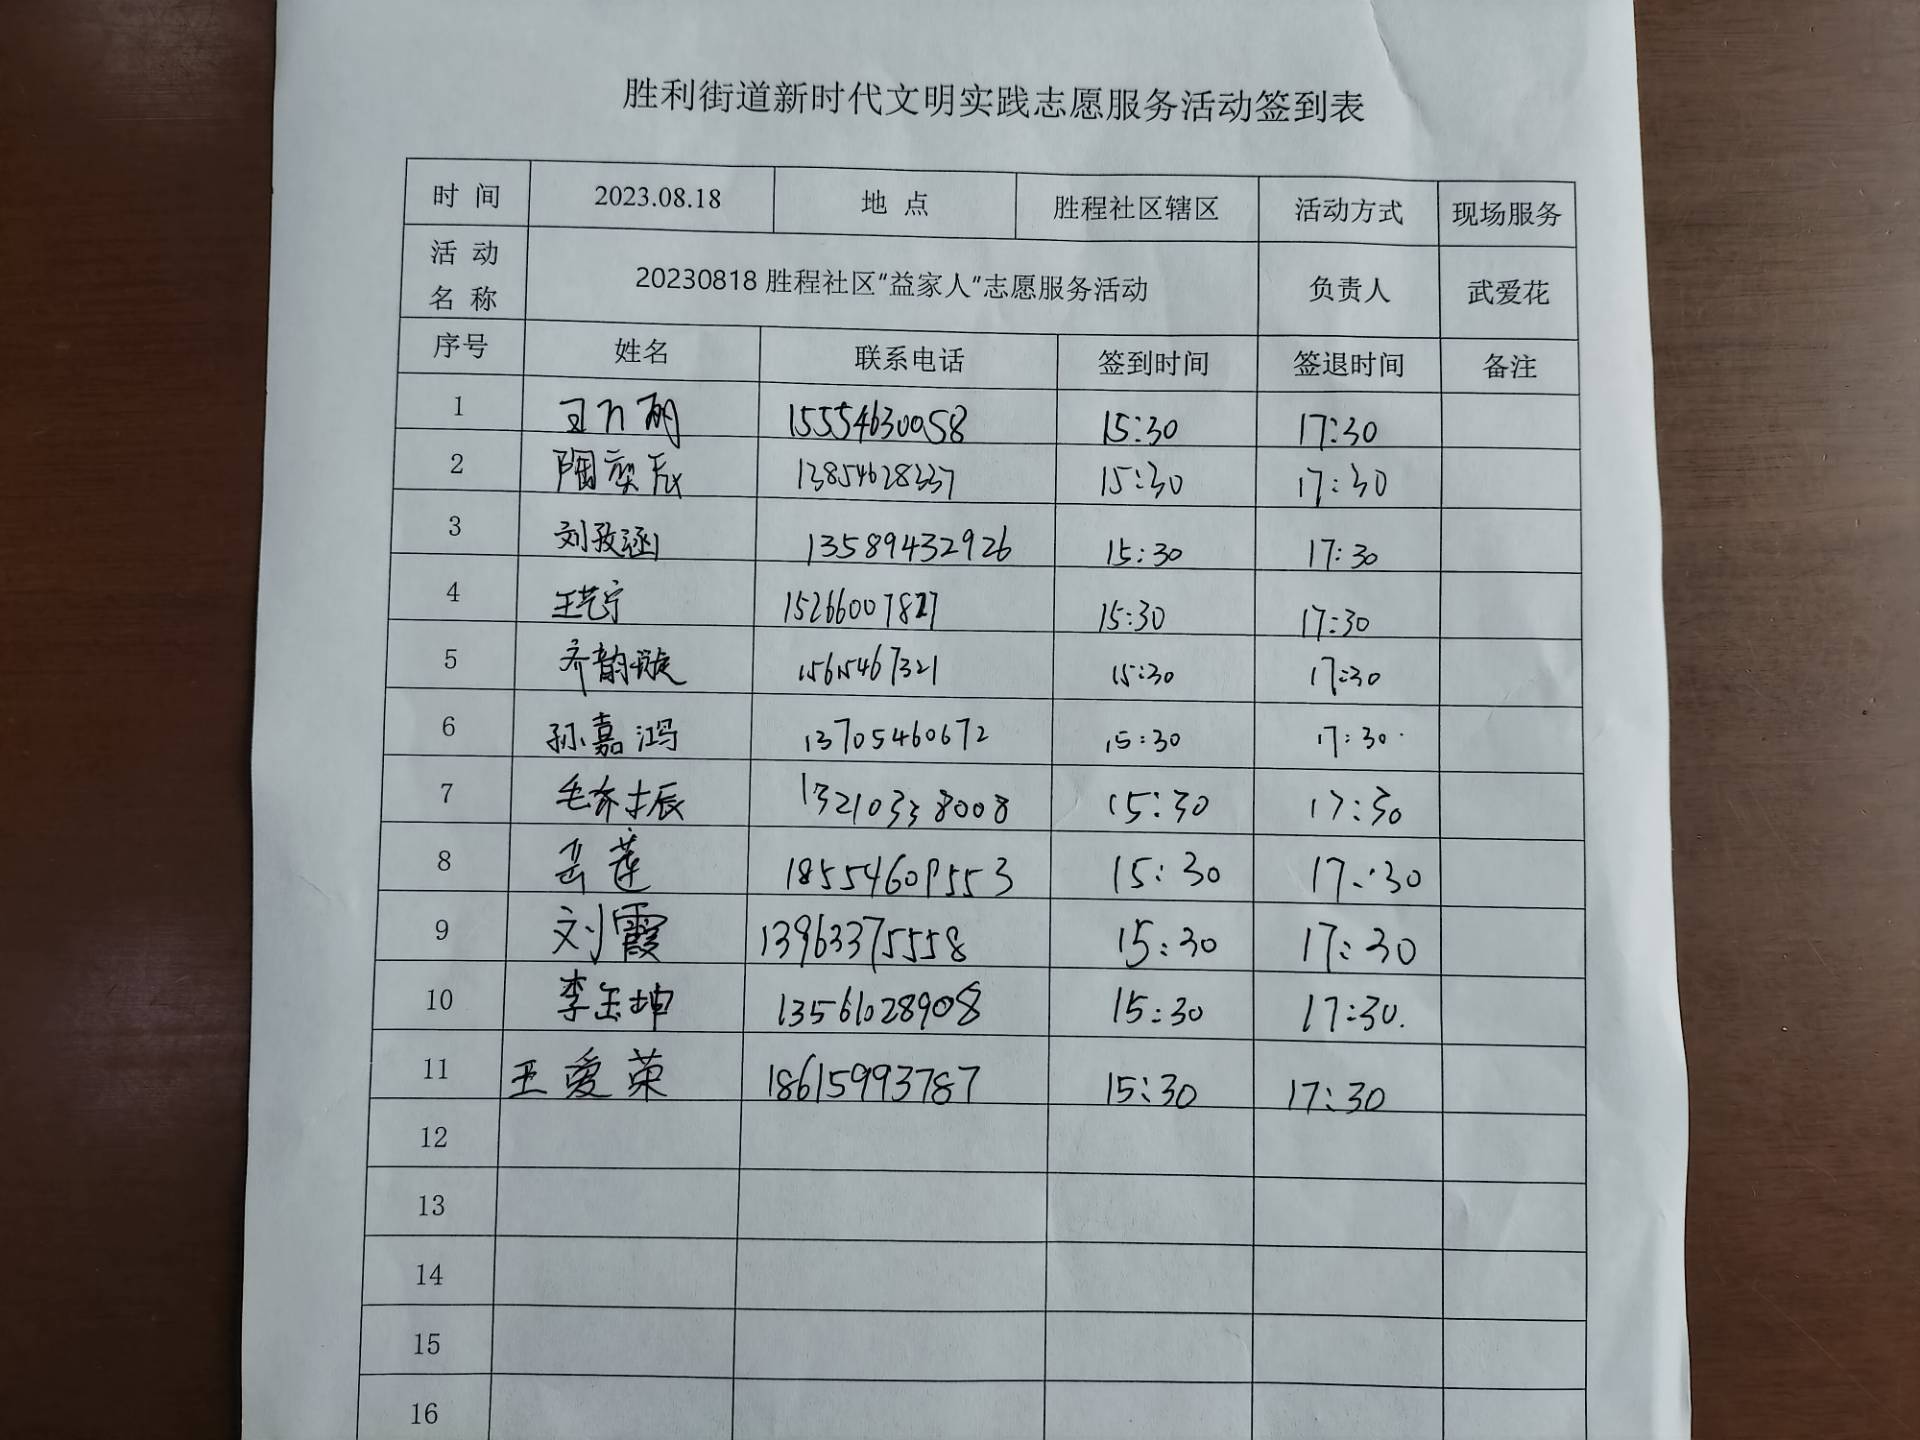 胜利街道新时代文明实践志愿服务活动签到表
时 间 2023.08.18 地 点 胜程社区辖区 活动方式 现场服务
活 动 名 称 20230818 胜程社区“益家人”志愿服务活动 负责人 武爱花
序号 姓名 联系电话 签到时间 签退时间 备注
1 15554630058 15:30 17:30
2 陶奕辰 13854628337 15:30 17:30
3 刘孜涵 13589432926 15:30 17:30
4 王艺宁 15266007827 15:30 17:30
5 齐韵璇 15615467321 15:30 17:30
6 孙嘉鸿 13705460672 15:30 17:30
7 13210338008 15:30 17:30
8 岳莲 18554609553 15:30 17:30
9 刘霞 13963375558 15:30 17:30
10 李玉坤 13561028908 15:30 17:30.
11 王爱荣 18615993787 15:30 17:30
12
13
14
15
16